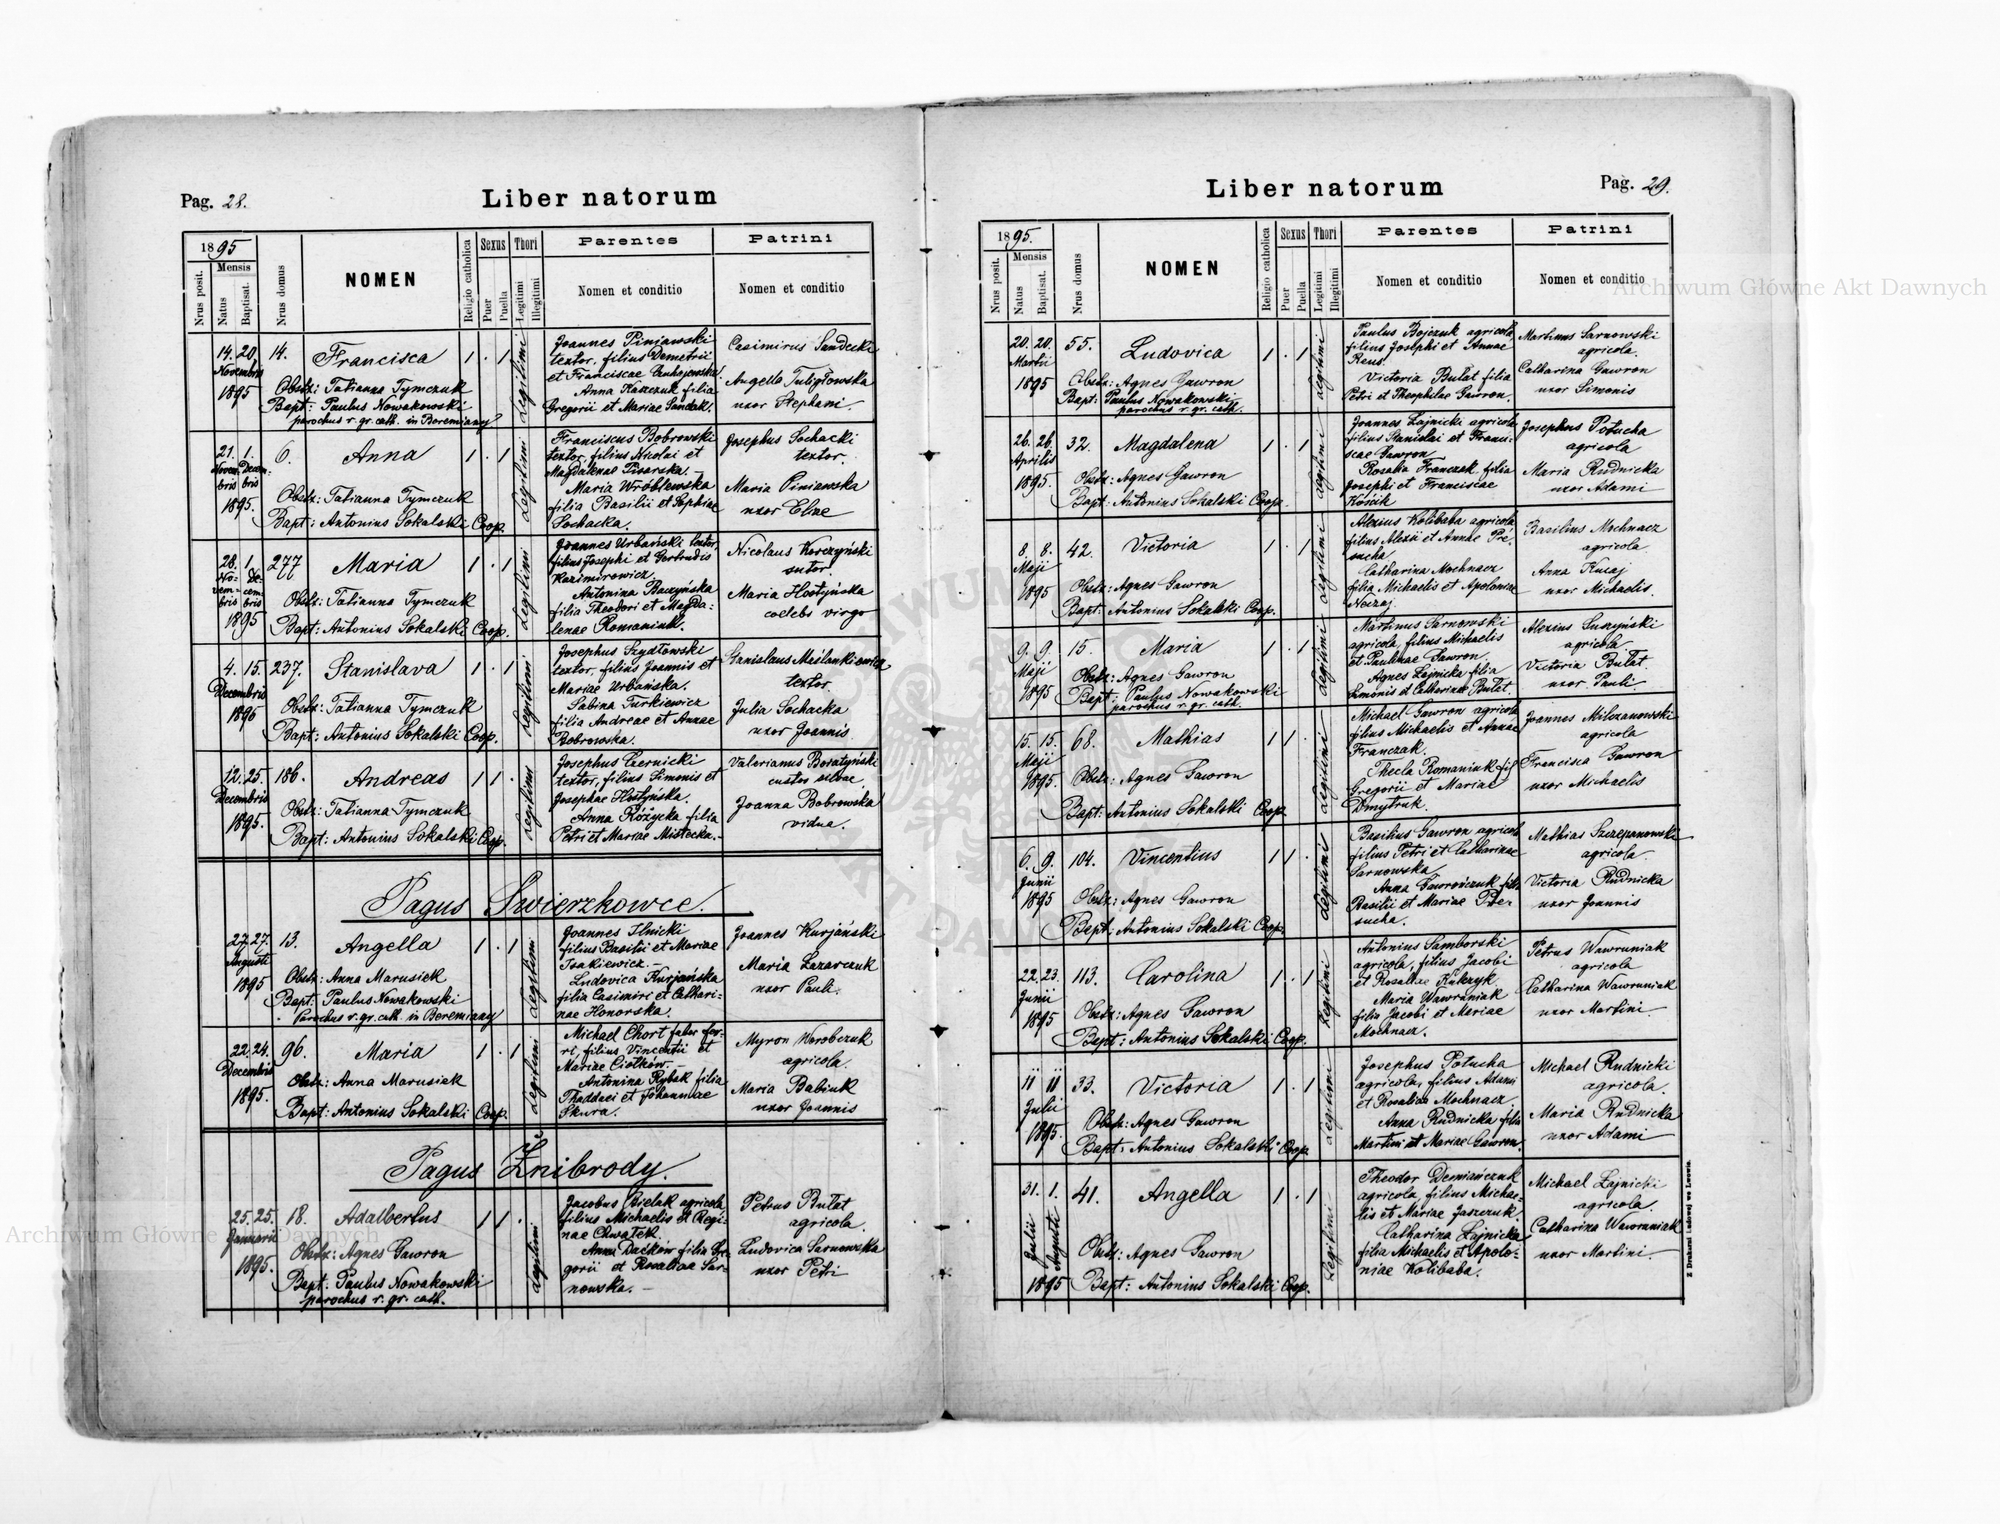 Pag. 28.
Liber natorum
1895
Nrus posit.
Mensis
Natus
Baptisat.
Nrus domus
NOMEN
Religio catholica
Sexus
Puer
Puella
Thori
Legitimi
Illegitimi
Parentes
Nomen et conditio
Patrini
Nomen et conditio
14. 20. Novembris 1895
14.
Francisca
Obstz: Tatianna Tymczuk
Bapt: Paulus Nowakowski
parochus r. gr. cath. in Beremiany
1 . 1
Legitimi
Joannes Piniawski
textor, filius Demetrii
et Franciscae
Anna Kazczuk filia
Gregorii et Mariae Sandak.
Casimirus Sandecki
Angella Tuligłowska
uxor Stephani.
21. Novembris 1. Decembris 1895.
6.
Anna
Obstz: Tatianna Tymczuk
Bapt: Antonius Sokalski Coop.
1 . 1
Legitimi
Franciscus Bobrowski
textor, filius Nicolai et
Magdalenae Pisarska. —
Maria Wróblewska
filia Basilii et Sophiae
Sochacka.
Josephus Sochacki
textor.
Maria Piniewska
uxor Eliae
28. Novembris 1. Decembris 1895
277
Maria
Obstz: Tatianna Tymczuk
Bapt: Antonius Sokalski Coop.
1 . 1
Legitimi
Joannes Urbański textor,
filius Josephi et Gertrudis
Kazimirowicz.
Antonina Baczyńska
filia Theodori et Magda-
lenae Romaniuk.
Nicolaus Korczyński
sutor.
Maria Hostyńska
coelebs virgo
4. 15. Decembris 1895
237.
Stanislava
Obstz: Tatianna Tymczuk
Bapt: Antonius Sokalski Coop.
1 . 1
Legitimi
Josephus Szydłowski
textor, filius Joannis et
Mariae Urbańska.
Sabina Turkiewicz
filia Andreae et Annae
Bobrowska.
Stanislaus Maślankiewicz
textor.
Julia Sochacka
uxor Joannis
12. 25. Decembris 1895.
186.
Andreas
Obstz: Tatianna Tymczuk
Bapt: Antonius Sokalski Coop.
1 1 .
Legitimus
Josephus Czernicki
textor, filius Simonis et
Josephae Hostyńska.
Anna Różycka filia
Petri et Mariae Mistecka. —
Valerianus Boratyński
custos silvae
Joanna Bobrowska
vidua.
Pagus Swierzkowce.
27. 27. Augusti 1895
13.
Angella
Obstz: Anna Marusiek
Bapt: Paulus Nowakowski
Parochus r. gr. cath. in Beremiany
1 . 1
Legitimi
Joannes Ilnicki
filius Basilii et Mariae
Isakiewicz. —
Ludovica Kurjańska
filia Casimiri et Cathari-
nae Honorska.
Joannes Kurjański
Maria Lazarczuk
uxor Pauli.
22. 24. Decembris 1895.
96.
Maria
Obstz: Anna Marusiek
Bapt: Antonius Sokalski Coop.
1 . 1
Legitimi
Michael Chort faber fer-
ri, filius Vincentii et
Mariae Ciotków. —
Antonina Rybak filia
Thaddaei et Johannae
Skura.
Myron Worobczuk
agricola.
Maria Babiuk
uxor Joannis
Pagus Żnibrody.
25. 25. Januarii 1895.
18.
Adalbertus
Obstz: Agnes Gawron
Bapt: Paulus Nowakowski
parochus r. gr. cath.
1 1 .
Legitimi
Jacobus Bielak agricola
filius Michaelis et Regi-
nae Chwałek.
Anna Daćków filia Gre-
gorii et Rosaliae Sar-
nowska. —
Petrus Bułat
agricola.
Ludovica Sarnowska
uxor Petri
Pag. 29.
Liber natorum
1895.
Nrus posit.
Mensis
Natus
Baptisat.
Nrus domus
NOMEN
Religio catholica
Sexus
Puer
Puella
Thori
Legitimi
Illegitimi
Parentes
Nomen et conditio
Patrini
Nomen et conditio
20. 20. Martii 1895
55.
Ludovica
Obstz: Agnes Gawron
Bapt: Paulus Nowakowski
parochus r. gr. cath.
1 . 1
Legitimi
Paulus Bojczuk agricola,
filius Josephi et Annae
Reus.
Victoria Bułat filia
Petri et Theophilae Gawron.
Martinus Sarnowski
agricola.
Catharina Gawron
uxor Simonis
26. 26. Aprilis 1895.
32.
Magdalena
Obstz: Agnes Gawron
Bapt: Antonius Sokalski Coop.
1 . 1
Legitimi
Joannes Łajnicki agricola
filius Stanislai et Franci-
scae Gawron
Rosalia Franczak filia
Josephi et Franciscae
Kóścik
Josephus Potucha
agricola
Maria Rudnicka
uxor Adami
8. 8. Maji 1895
42.
Victoria
Obstz: Agnes Gawron
Bapt: Antonius Sokalski Coop.
1 . 1
Legitimi
Alexius Kolibaba agricola
filius Alexii et Annae Pre-
sucha
Catharina Mochnacz
filia Michaelis et Apoloniae
Basilius Mochnacz
agricola
Anna Kucaj
uxor Michaelis.
9. 9. Maji 1895
15.
Maria
Obstz: Agnes Gawron
Bapt: Paulus Nowakowski
parochus r. gr. cath.
1 . 1
Legitimi
Martinus Sarnowski
agricola, filius Michaelis
et Paulinae Gawron.
Agnes Łajnicka filia
Simonis et Catharinae Bułat.
Alexius Suszyński
agricola
Victoria Bułat
uxor Pauli.
15. 15. Maji 1895.
68.
Mathias
Obstz: Agnes Gawron
Bapt: Antonius Sokalski Coop
1 1 .
Legitimi
Michael Gawron agricola
filius Michaelis et Annae
Franczak.
Thecla Romaniuk fil.
Gregorii et Mariae
Dmytruk.
Joannes Milczanowski
agricola
Francisca Gawron
uxor Michaelis
6. 9. Junii 1895
104.
Vincentius
Obstz: Agnes Gawron
Bapt: Antonius Sokalski Coop.
1 1 .
Legitimi
Basilius Gawron agricola
filius Petri et Catharinae
Sarnowska
Anna Gawrończuk filia
Basilii et Mariae Pre-
sucha.
Mathias Szczepanowski
agricola
Victoria Rudnicka
uxor Joannis
22. 23. Junii 1895
113.
Carolina
Obstz: Agnes Gawron
Bapt: Antonius Sokalski Coop.
1 . 1
Legitimi
Antonius Samborski
agricola, filius Jacobi
et Rosaliae Kukzyk
Maria Wawruniak
filia Jacobi et Mariae
Mochnacz.
Petrus Wawruniak
agricola
Catharina Wawruniak
uxor Martini
11 11 Julii 1895.
33.
Victoria
Obstz: Agnes Gawron
Bapt: Antonius Sokalski Coop.
1 . 1
Legitimi
Josephus Potucha
agricola, filius Adami
et Rosaliae Mochnacz.
Anna Rudnicka filia
Martini et Mariae Gawron.
Michael Rudnicki
agricola.
Maria Rudnicka
uxor Adami
31. Julii 1. Augusti 1895
41.
Angella
Obstz: Agnes Gawron
Bapt: Antonius Sokalski Coop.
1 . 1
Legitimi
Theodor Demiańczuk
agricola, filius Michae-
lis et Mariae Jaszczuk.
Catharina Łajnicka
filia Michaelis et Apolo-
niae Kolibaba.
Michael Łajnicki
agricola.
Catharina Wawruniak
uxor Martini
Z Drukarni Ludowej we Lwowie.
Archiwum Główne Akt Dawnych
Archiwum Główne Akt Dawnych